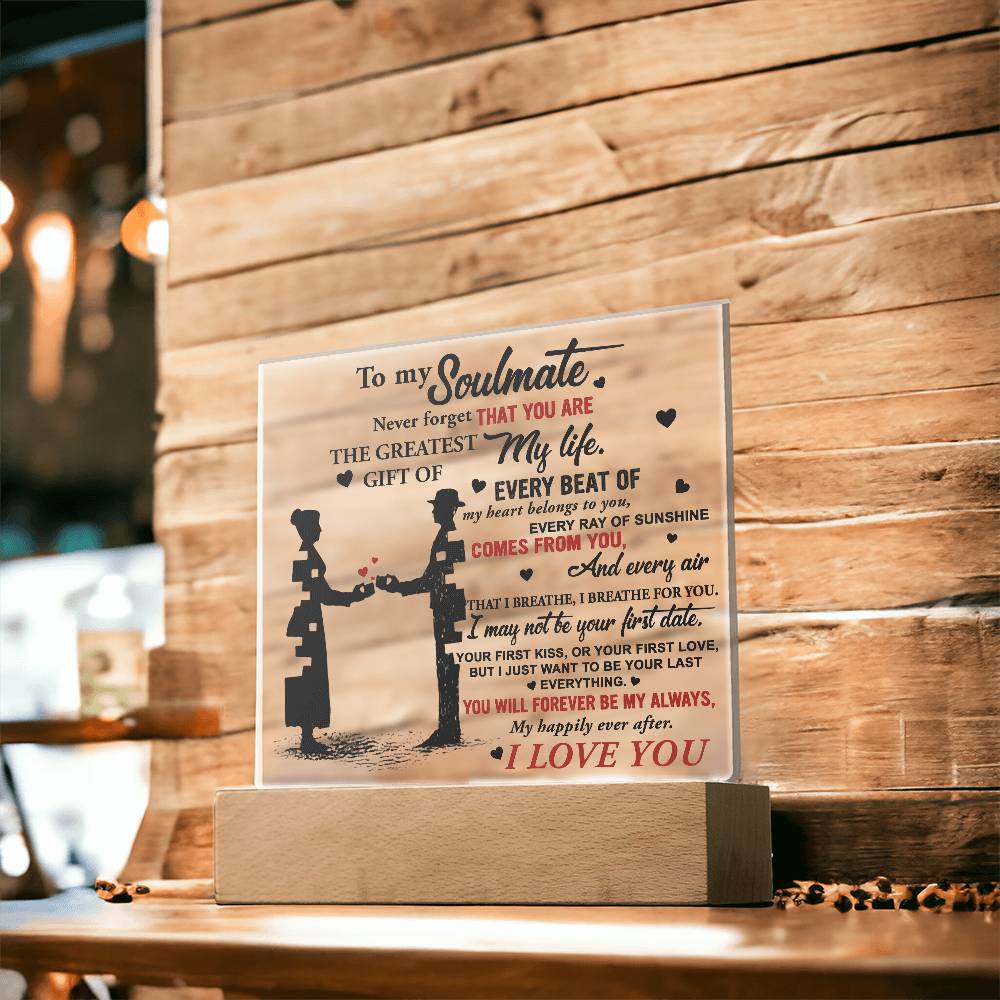 To my Soulmate
Never forget THAT YOU ARE
THE GREATEST My life.
GIFT OF
EVERY BEAT OF
my heart belongs to you,
EVERY RAY OF SUNSHINE
COMES FROM YOU,
And every air
THAT I BREATHE, I BREATHE FOR YOU.
I may not be your first date,
YOUR FIRST KISS, OR YOUR FIRST LOVE,
BUT I JUST WANT TO BE YOUR LAST
EVERYTHING.
YOU WILL FOREVER BE MY ALWAYS,
My happily ever after.
I LOVE YOU